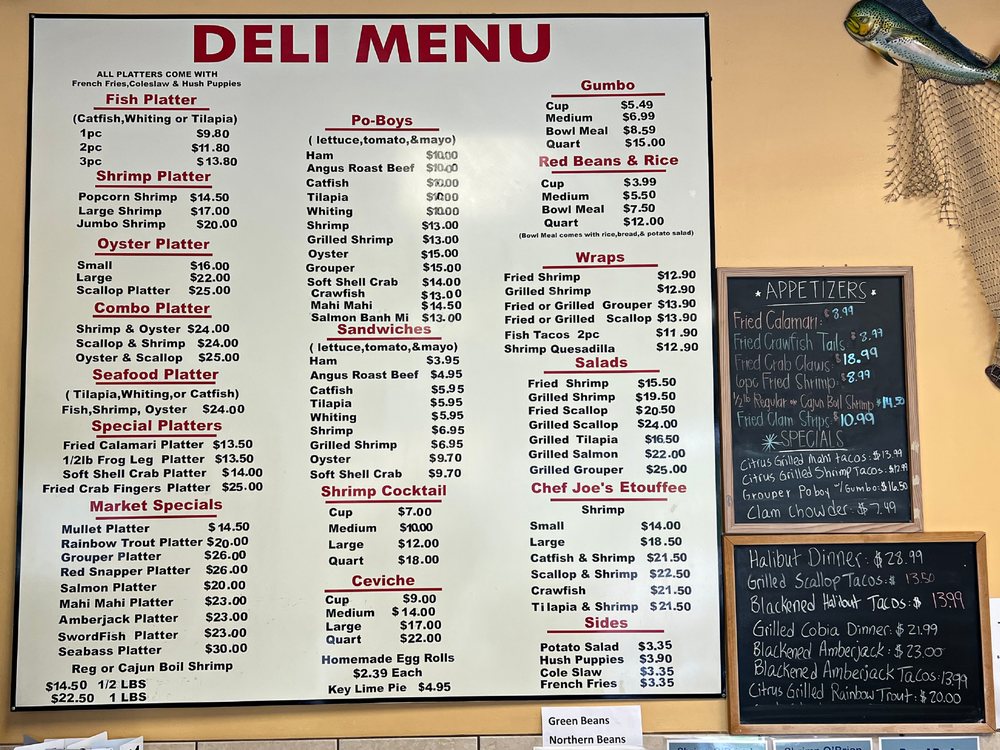 DELI MENU
ALL PLATTERS COME WITH
French Fries,Coleslaw & Hush Puppies
Fish Platter
(Catfish,Whiting or Tilapia)
1pc $9.80
2pc $11.80
3pc $13.80
Shrimp Platter
Popcorn Shrimp $14.50
Large Shrimp $17.00
Jumbo Shrimp $20.00
Oyster Platter
Small $16.00
Large $22.00
Scallop Platter $25.00
Combo Platter
Shrimp & Oyster $24.00
Scallop & Shrimp $24.00
Oyster & Scallop $25.00
Seafood Platter
( Tilapia,Whiting,or Catfish)
Fish,Shrimp, Oyster $24.00
Special Platters
Fried Calamari Platter $13.50
1/2lb Frog Leg Platter $13.50
Soft Shell Crab Platter $14.00
Fried Crab Fingers Platter $25.00
Market Specials
Mullet Platter $14.50
Rainbow Trout Platter $20.00
Grouper Platter $26.00
Red Snapper Platter $26.00
Salmon Platter $20.00
Mahi Mahi Platter $23.00
Amberjack Platter $23.00
SwordFish Platter $23.00
Seabass Platter $30.00
Reg or Cajun Boil Shrimp
$14.50 1/2 LBS
$22.50 1 LBS
Po-Boys
( lettuce,tomato,&mayo)
Ham $10.00
Angus Roast Beef $10.00
Catfish $10.00
Tilapia $10.00
Whiting $10.00
Shrimp $13.00
Grilled Shrimp $13.00
Oyster $15.00
Grouper $15.00
Soft Shell Crab $14.00
Crawfish $13.00
Mahi Mahi $14.50
Salmon Banh Mi $13.00
Sandwiches
( lettuce,tomato,&mayo)
Ham $3.95
Angus Roast Beef $4.95
Catfish $5.95
Tilapia $5.95
Whiting $5.95
Shrimp $6.95
Grilled Shrimp $6.95
Oyster $9.70
Soft Shell Crab $9.70
Shrimp Cocktail
Cup $7.00
Medium $10.00
Large $12.00
Quart $18.00
Ceviche
Cup $9.00
Medium $14.00
Large $17.00
Quart $22.00
Homemade Egg Rolls
$2.39 Each
Key Lime Pie $4.95
Gumbo
Cup $5.49
Medium $6.99
Bowl Meal $8.59
Quart $15.00
Red Beans & Rice
Cup $3.99
Medium $5.50
Bowl Meal $7.50
Quart $12.00
(Bowl Meal comes with rice,bread,& potato salad)
Wraps
Fried Shrimp $12.90
Grilled Shrimp $12.90
Fried or Grilled Grouper $13.90
Fried or Grilled Scallop $13.90
Fish Tacos 2pc $11.90
Shrimp Quesadilla $12.90
Salads
Fried Shrimp $15.50
Grilled Shrimp $19.50
Fried Scallop $20.50
Grilled Scallop $24.00
Grilled Tilapia $16.50
Grilled Salmon $22.00
Grilled Grouper $25.00
Chef Joe's Etouffee
Shrimp
Small $14.00
Large $18.50
Catfish & Shrimp $21.50
Scallop & Shrimp $22.50
Crawfish $21.50
Tilapia & Shrimp $21.50
Sides
Potato Salad $3.35
Hush Puppies $3.90
Cole Slaw $3.35
French Fries $3.35
APPETIZERS
Fried Calamari: $8.99
Fried Crawfish Tails $8.99
Fried Crab Claws: $18.99
6pc Fried Shrimp: $8.99
1/2 lb Regular or Cajun Boil Shrimp $14.50
Fried Clam Strips: $10.99
SPECIALS
Citrus Grilled Mahi Tacos: $13.99
Citrus Grilled Shrimp Tacos: $12.99
Grouper Poboy w/ Gumbo: $16.50
Clam Chowder: $7.49
Halibut Dinner: $28.99
Grilled Scallop Tacos: $13.50
Blackened Halibut Tacos: $13.99
Grilled Cobia Dinner: $21.99
Blackened Amberjack: $23.00
Blackened Amberjack Tacos: 13.99
Citrus Grilled Rainbow Trout: $20.00
Green Beans
Northern Beans